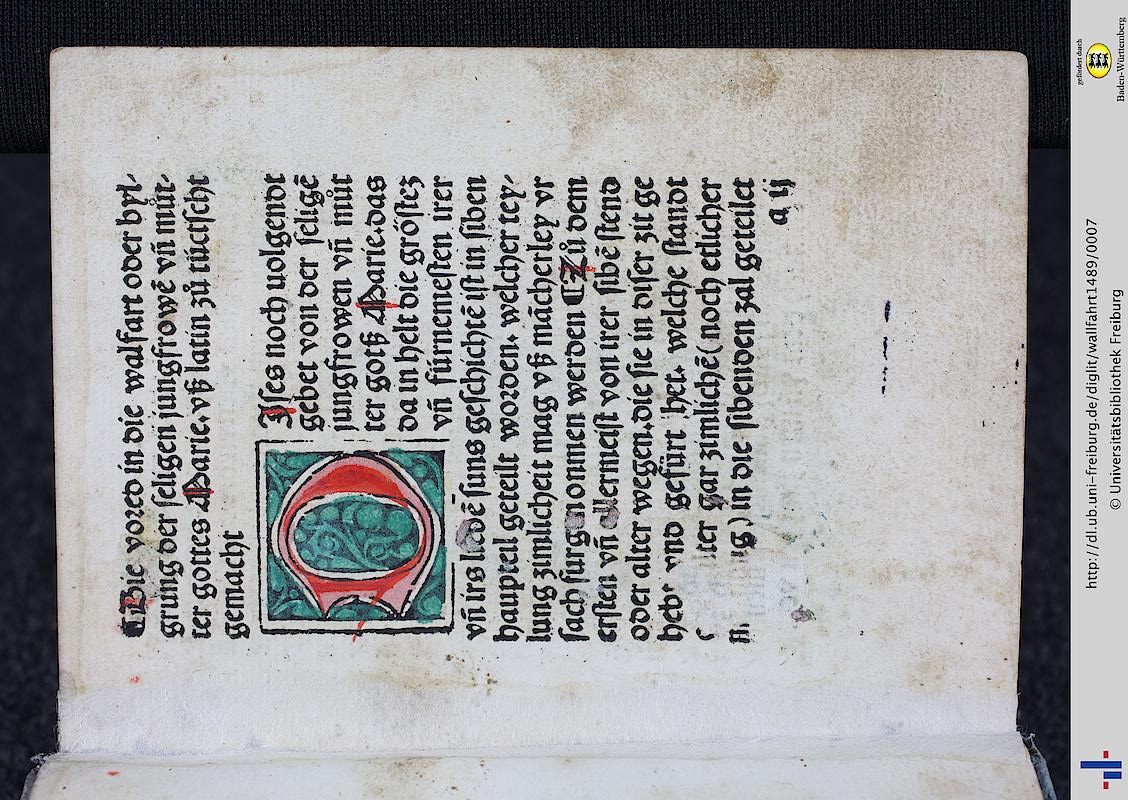 ¶Die vorred in die walfart oder byl-
grung der seligen jungfrowē vn̄ můt-
ter gottes Marie. vß latin zů tüctscht
gemacht
DIses noch uolgendt
gebet von der seligē
jungfrowen vn̄ můt
ter gotß Marie. das
da in helt die gröstez
vn̄ fürnemesten irer
vn̄ irs suns geschichtē ist in siben
haupteil geteilt worden. welcher tey-
lung zimlicheit mag vß mācherley vr
sach fürgnommen werden ¶Zů dem
ersten vn̄ allermeist von irer sibē stend
oder alter wegen. die sie in diser zit ge
hebt vnd gefürt het. welche standt
gar zimlichē (noch etlicher
) in die sibenden zal geteilet
a ij
gefördert durch
Baden-Württemberg
http://dl.ub.uni-freiburg.de/diglit/wallfahrt1489/0007
© Universitätsbibliothek Freiburg